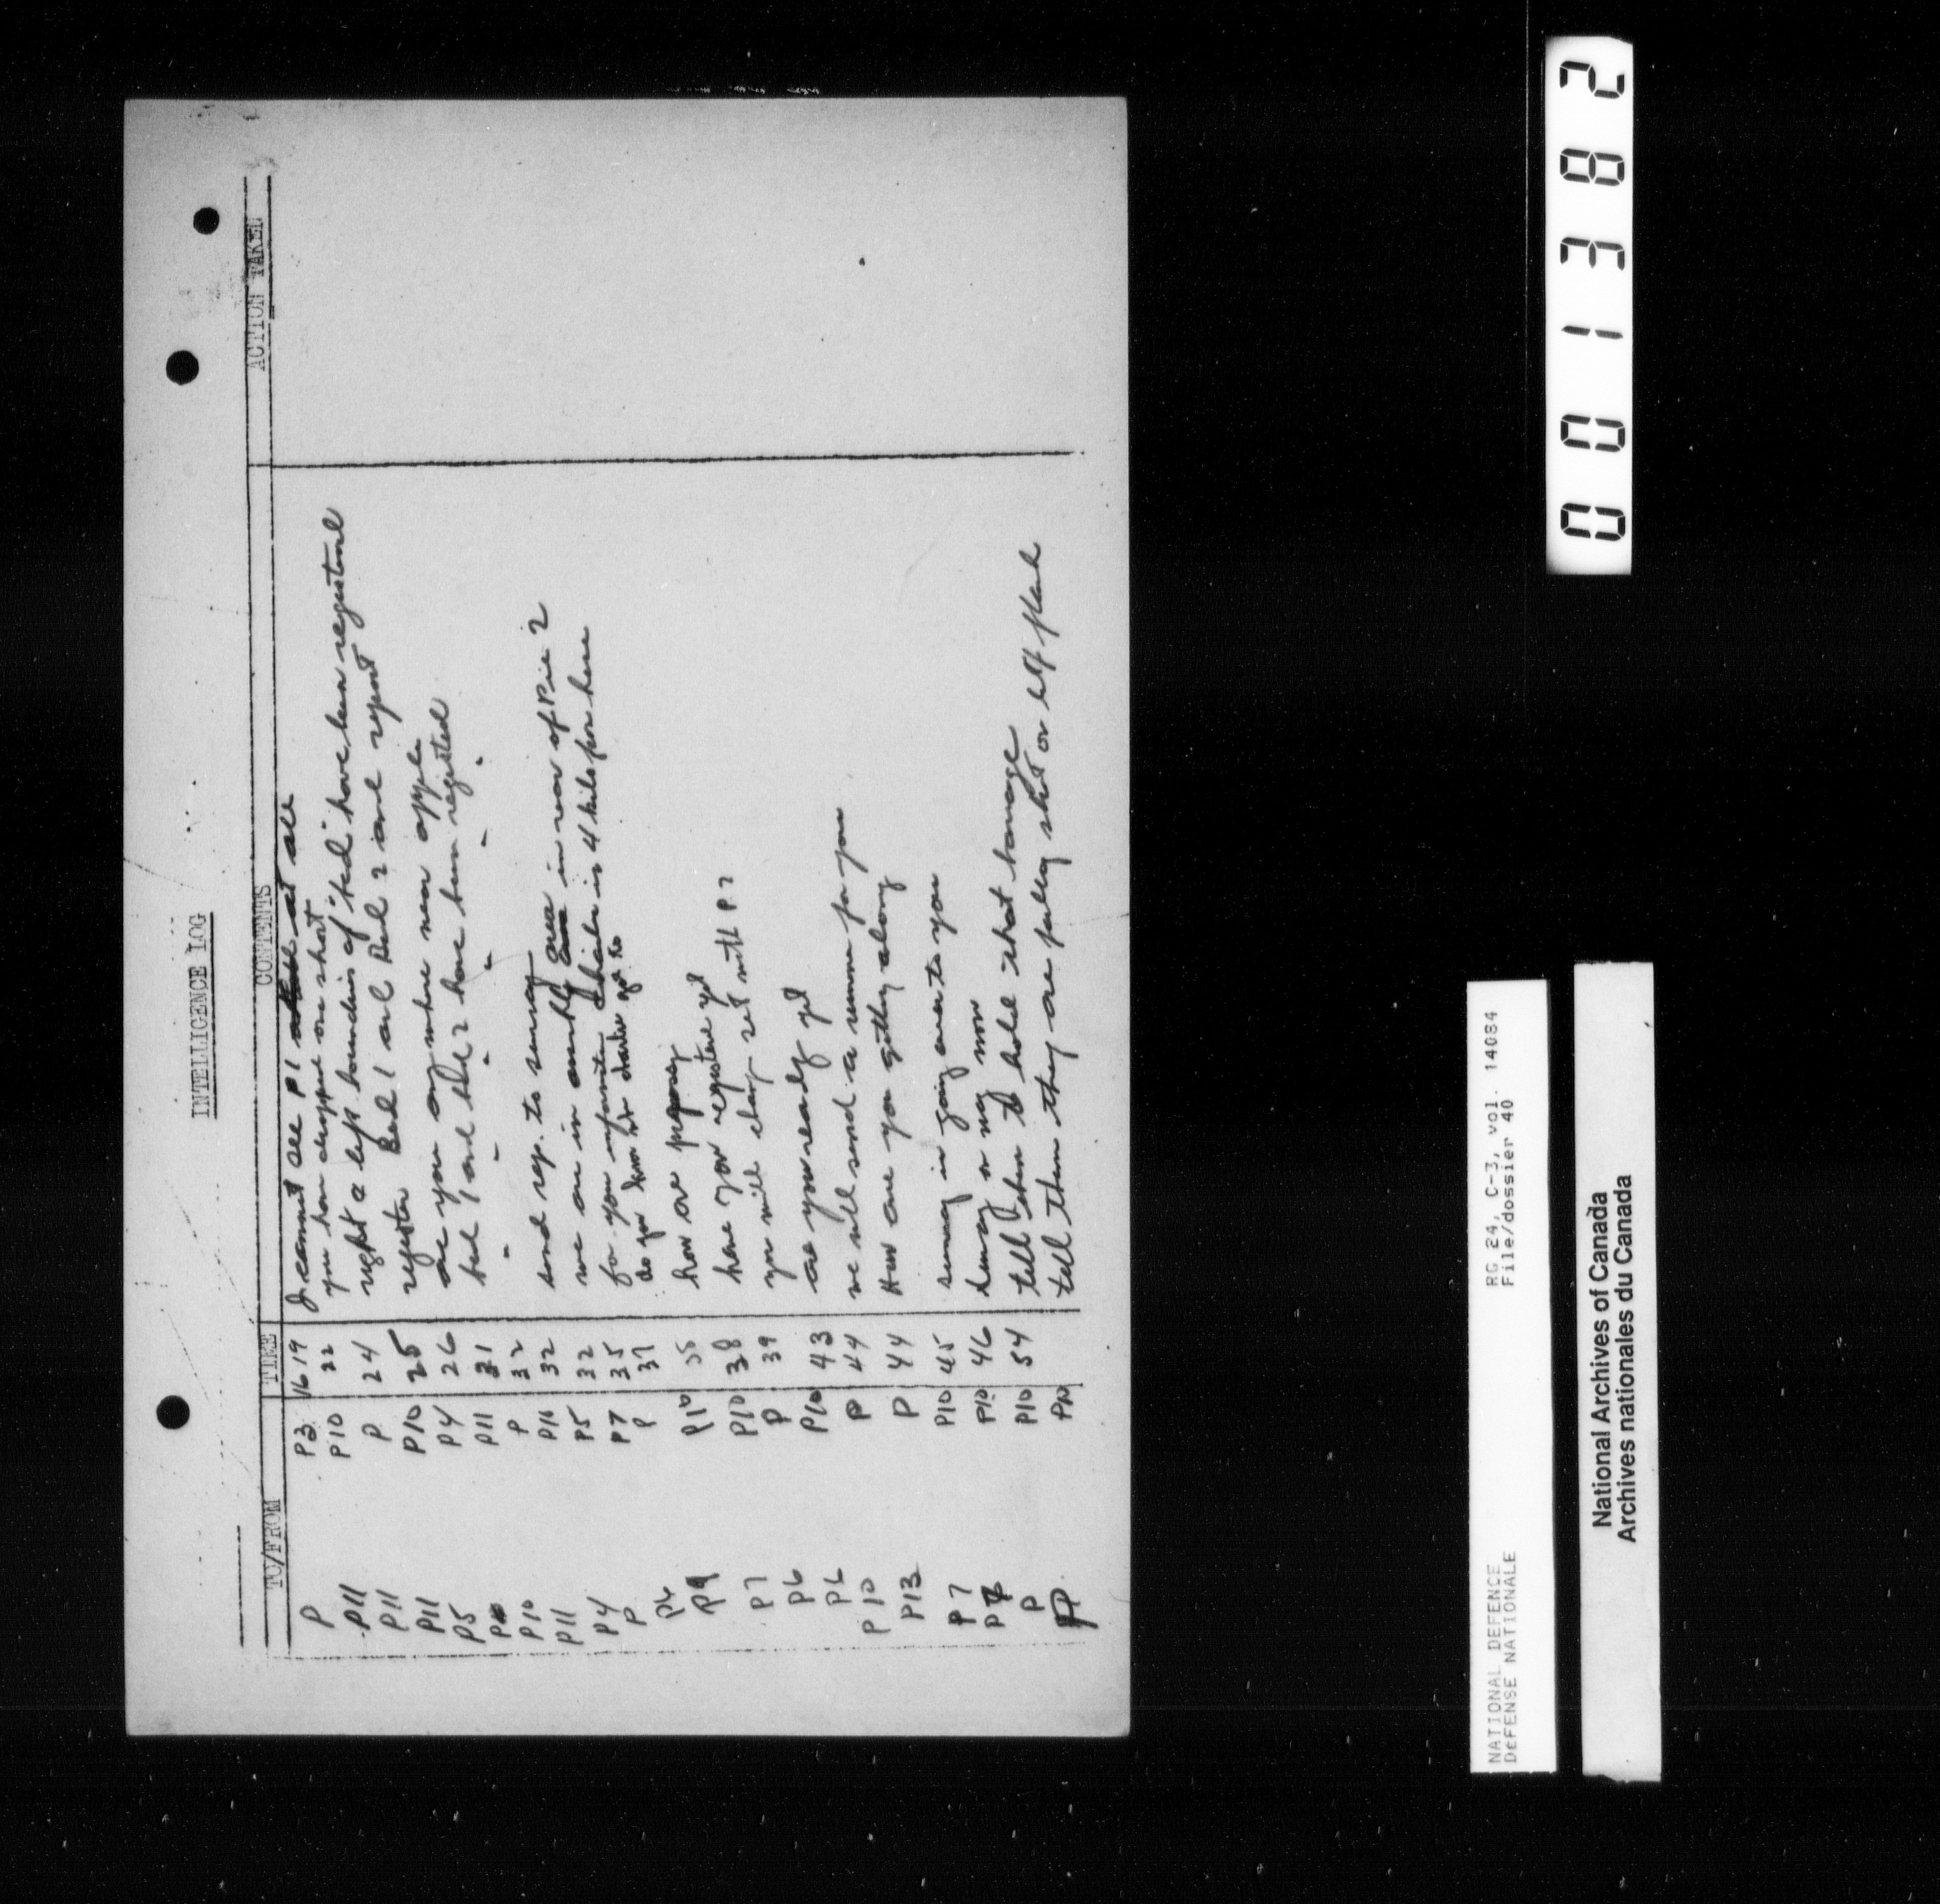 INTELLIGENCE LOG
TO/FROM TIME CONTENTS ACTION TAKEN
P P3 1619 I cannot see P1 at all
P11 P10 22 you have dropped one short
P11 P 24 right & left boundries of "bed" have been registered
P11 P10 25 register Bed 1 and Bed 2 and report
P5 P4 26 are you anywhere near apple
P11 31 bed 1 and bed 2 have been registered
P10 P 32 " " " " " "
P11 P11 32 send rep. to sunray
P4 P5 32 we are in assembly area in rear of Pie 2
P P7 35 for your information Charlie is 4 kilo from here
P 37 do you know how charlie got to
P10 how are
P9 P10 38 have you registered yet
P7 P 39 you will change set with P.7
P6 P10 43 are you ready yet
P 44 we will send a runner for you
P10
P13 P 44 How are you getting along
P7 P10 45 sunray is going over to you
P10 46 sunray on way now
P P10 54 tell them to hold that barrage
P P10 tell them they are falling short on left flank
001382
NATIONAL DEFENCE RG 24, C-3, vol. 14084
DEFENSE NATIONALE File/dossier 40
National Archives of Canada
Archives nationales du Canada